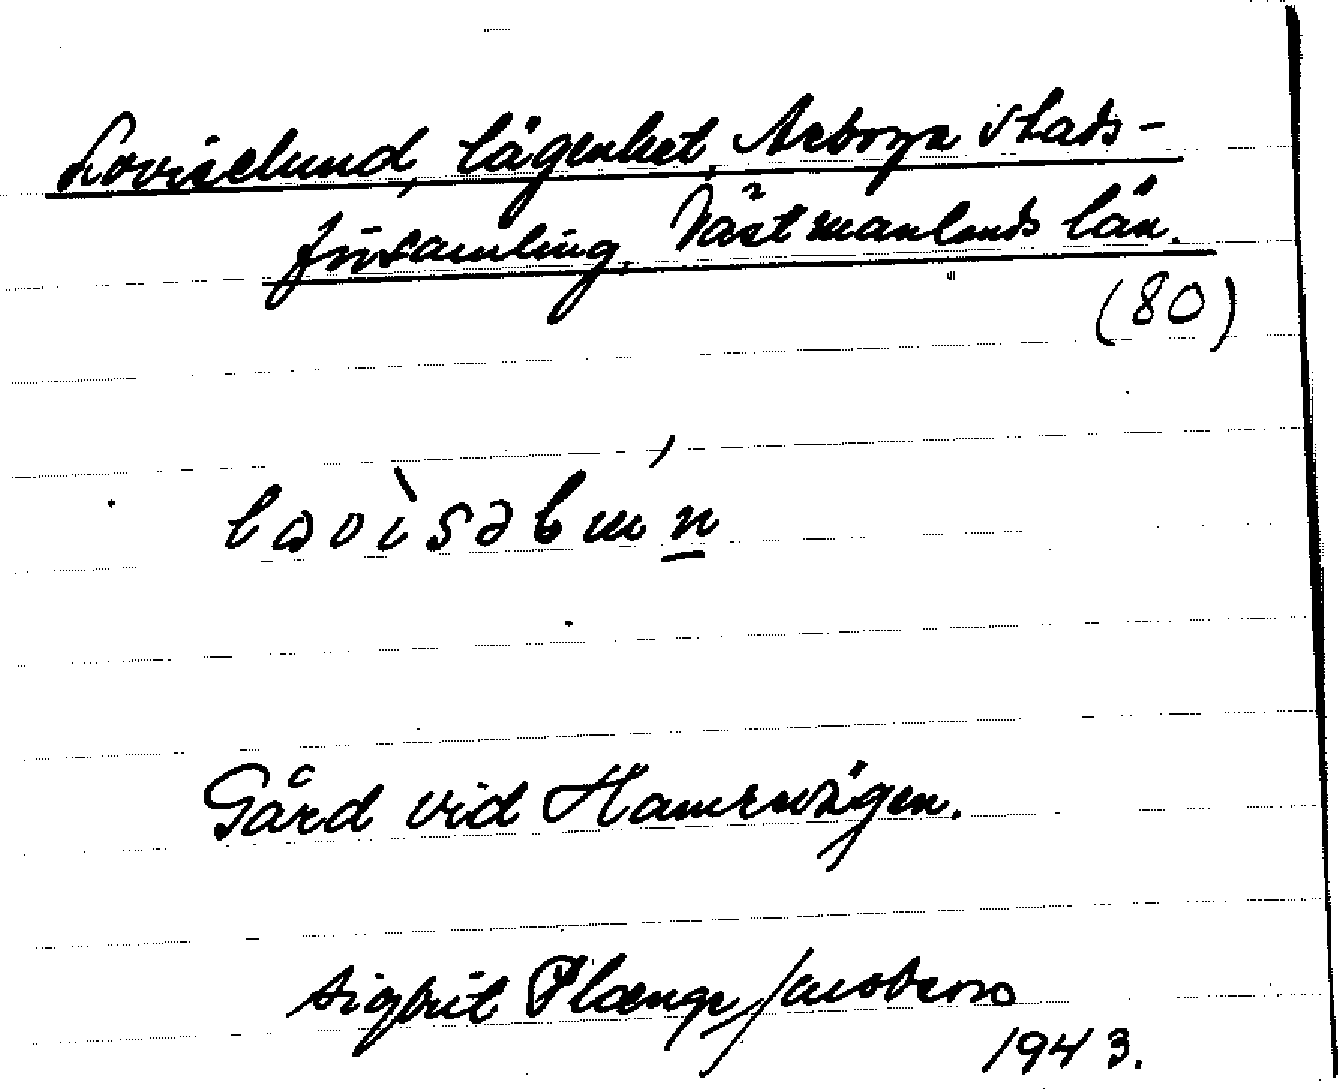 Loviselund, lägenhet, Arboga stads-
församling. Västmanlands län.
(80)
lɷvìsəlɯń
Gård vid Hamrevägen.
Sigbrit Plænge Jacobson
1943.